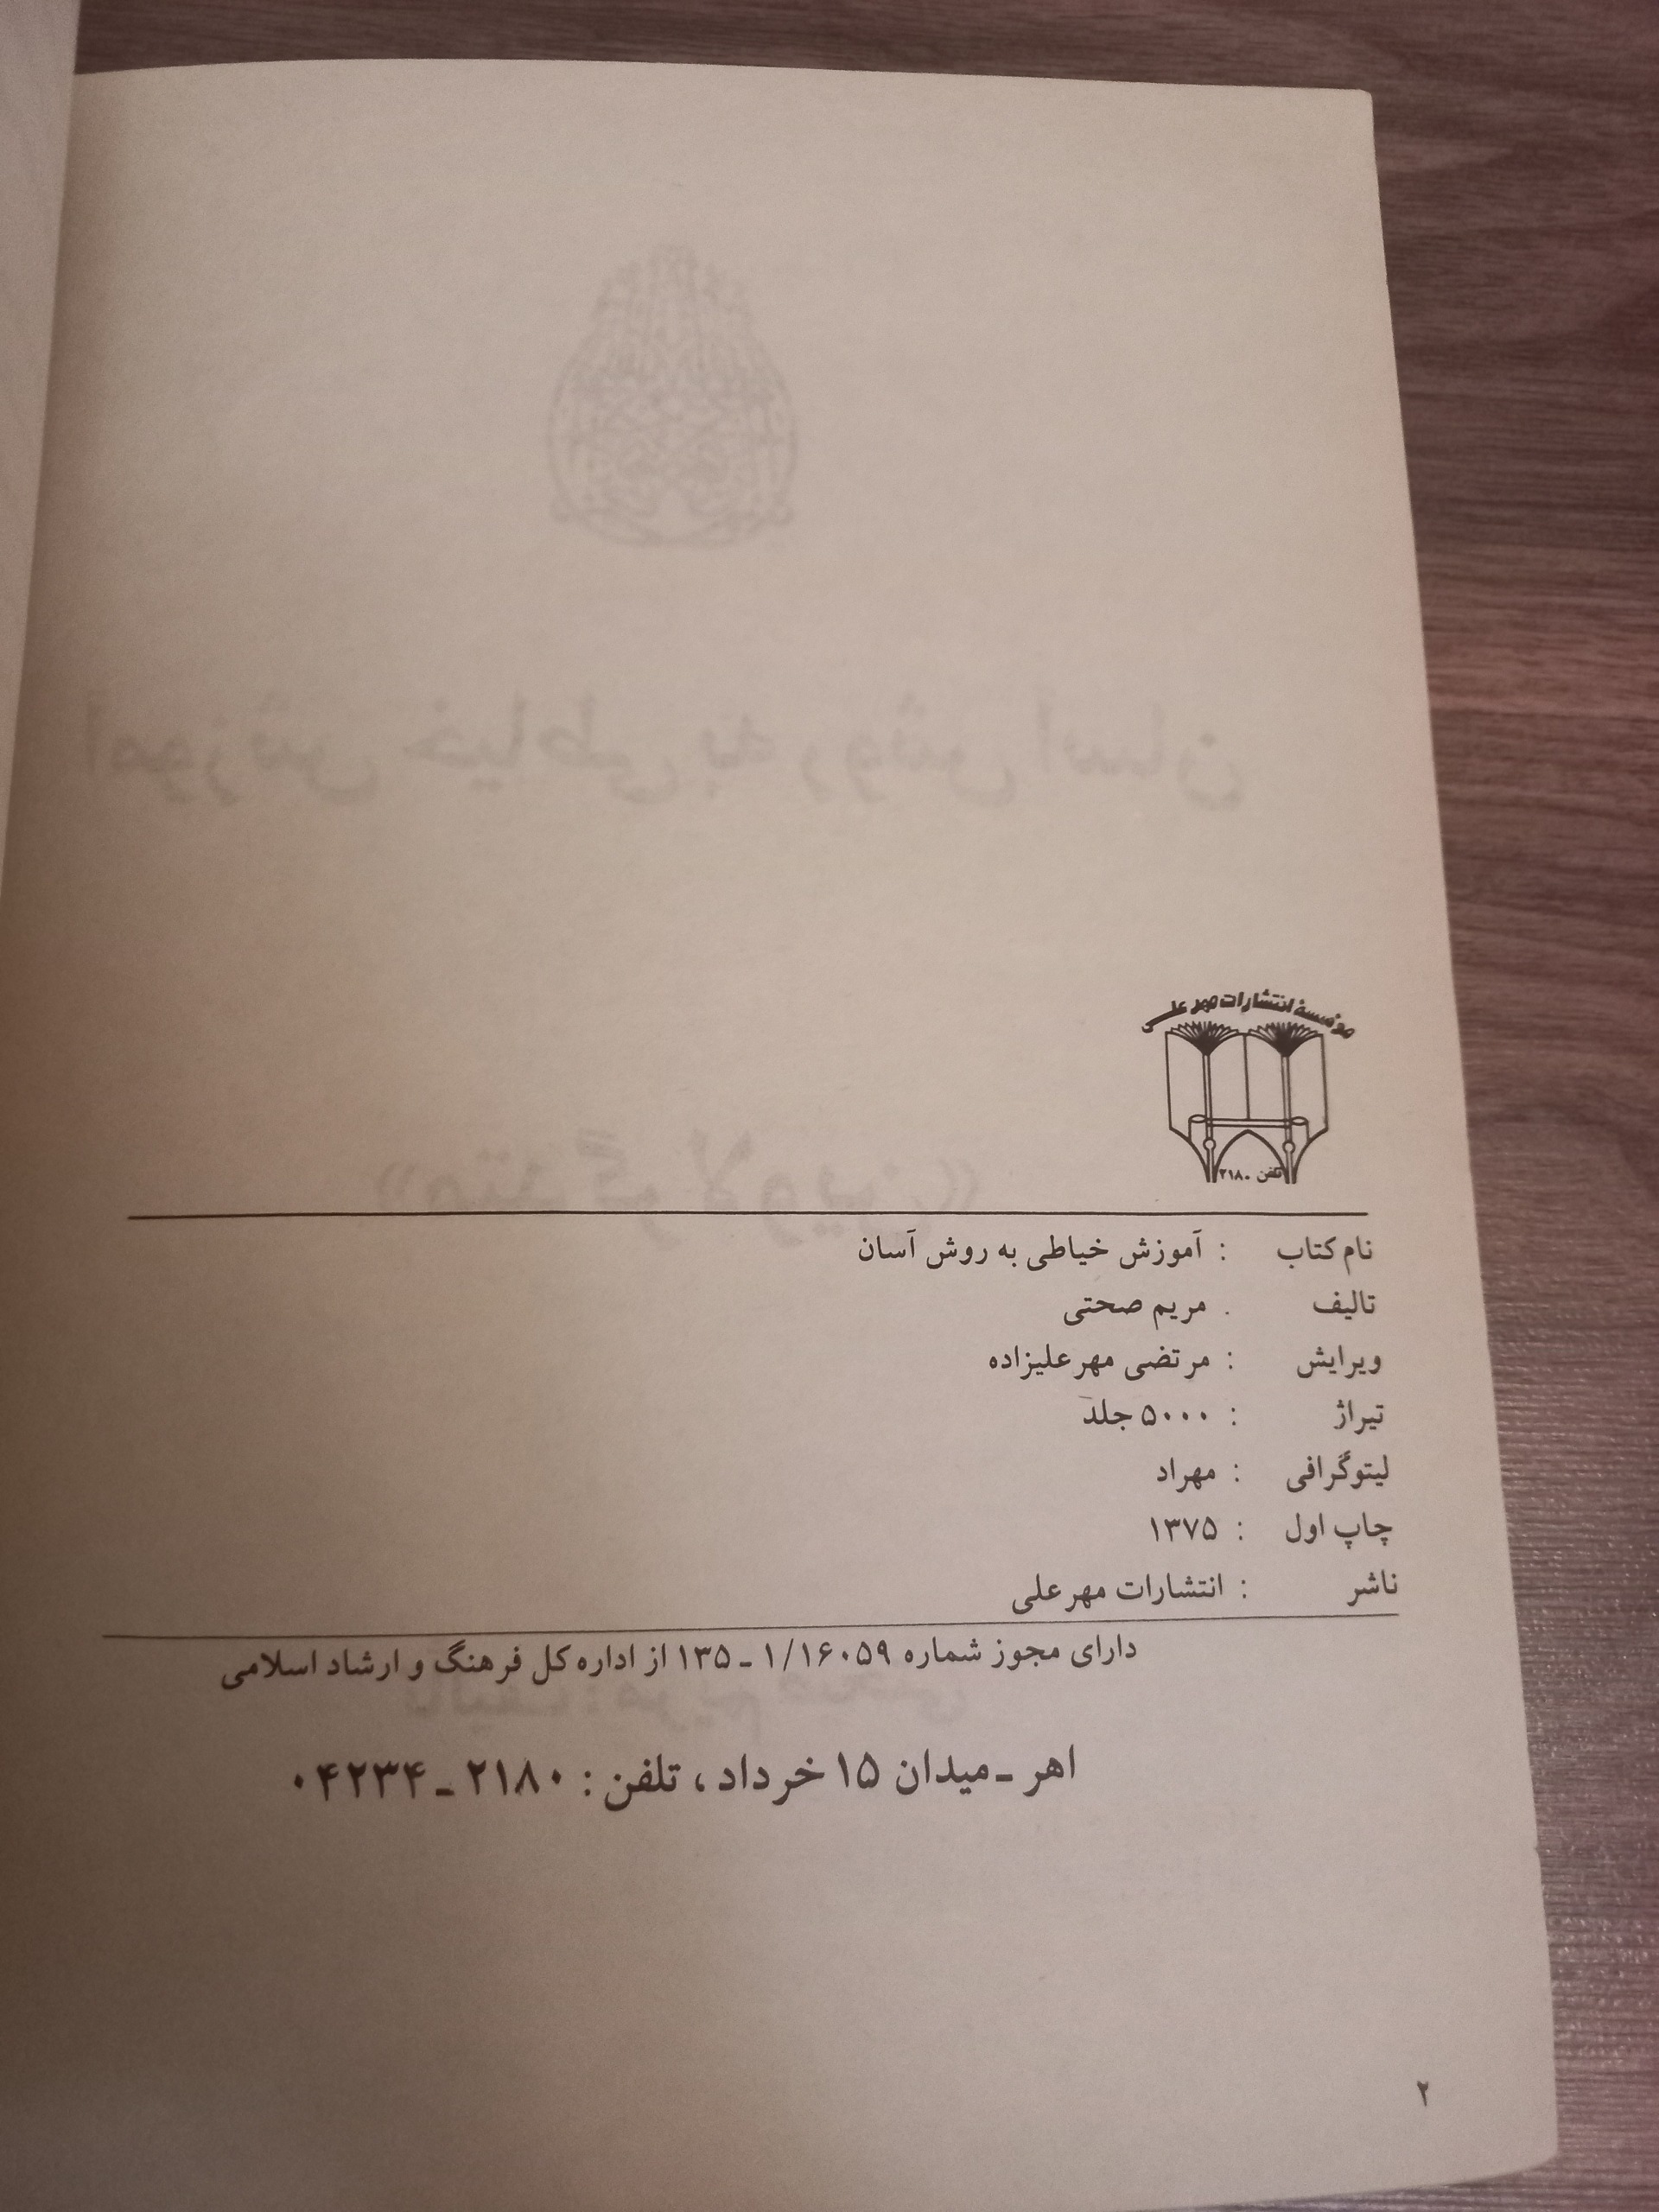 مؤسسهٔ انتشارات مهر علی
تلفن ۲۱۸۰
نام کتاب : آموزش خیاطی به روش آسان
تالیف . مریم صحتی
ویرایش : مرتضی مهرعلیزاده
تیراژ : ۵۰۰۰ جلد
لیتوگرافی : مهراد
چاپ اول : ۱۳۷۵
ناشر : انتشارات مهرعلی
دارای مجوز شماره ۱/۱۶۰۵۹ ـ ۱۳۵ از اداره کل فرهنگ و ارشاد اسلامی
اهر ـ میدان ۱۵ خرداد، تلفن : ۲۱۸۰ ـ ۰۴۲۳۴
۲